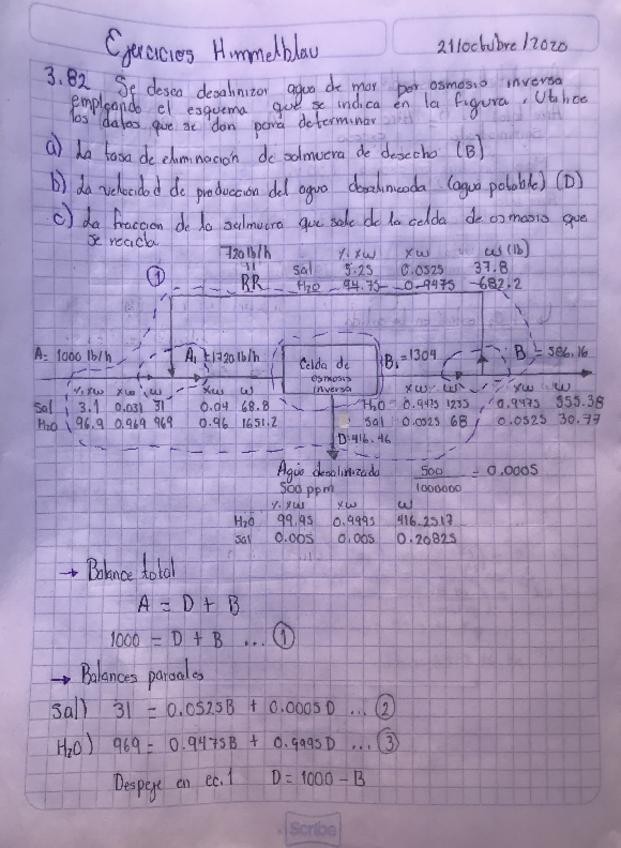 Ejercicios Himmelblau 21/octubre/2020
3.82 Se desea desalinizar agua de mar por osmosis inversa
empleando el esquema que se indica en la figura. Utilice
los datos que se dan para determinar
a) La tasa de eliminación de salmuera de desecho (B)
b) La velocidad de producción del agua desalinizada (agua potable) (D)
c) La fraccion de la salmuera que sale de la celda de osmosis que
se recicla
720 lb/h %xw xw w (lb)
① RR Sal 5.25 0.0525 37.8
H₂O 94.75 0.9475 682.2
A= 1000 lb/h A₁ = 1720 lb/h Celda de osmosis inversa B₁ = 1304 B = 586.16
%xw xw w xw w xw w xw w
Sal 3.1 0.031 31 0.04 68.8 H₂O 0.9475 1235 0.9475 555.38
H₂O 96.9 0.969 969 0.96 1651.2 Sal 0.0525 68 0.0525 30.77
D=416.46
Agua desalinizada 500/1000000 = 0.0005
500 ppm
%xw xw w
H₂O 99.95 0.9995 416.2517
Sal 0.005 0.005 0.20825
→ Balance total
A = D + B
1000 = D + B ... ①
→ Balances parciales
Sal) 31 = 0.0525B + 0.0005D ... ②
H₂O) 969 = 0.9475B + 0.9995D ... ③
Despeje en ec.1 D = 1000 - B
Scribe